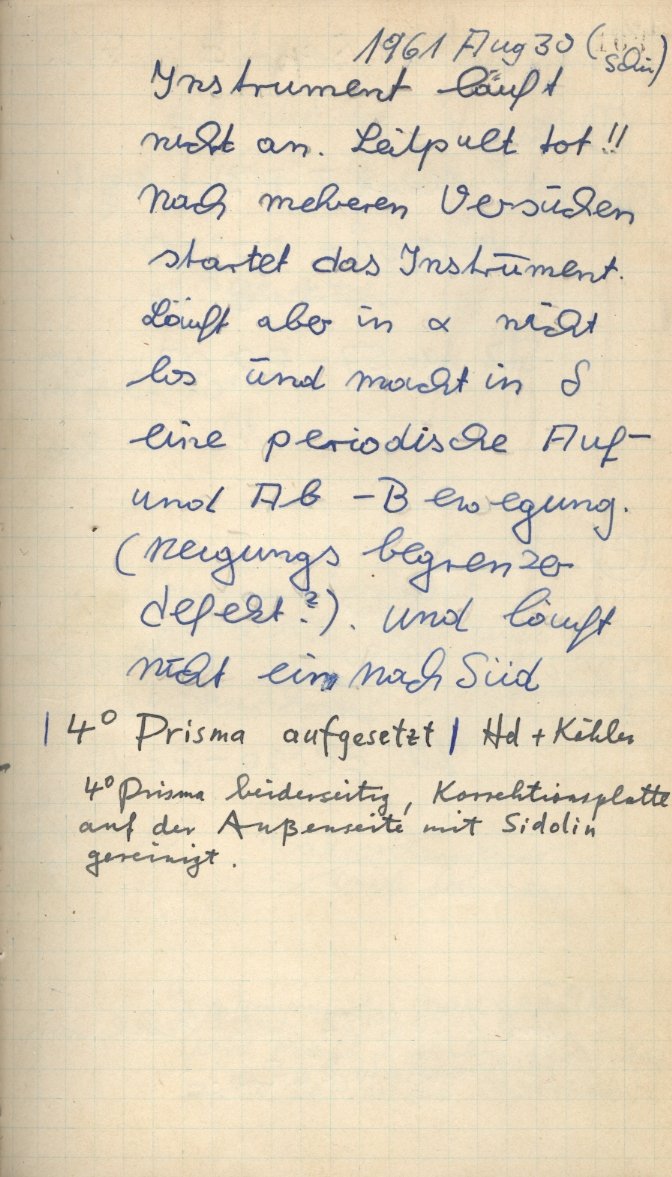 1961 Aug 30 (Schu)
Instrument läuft
nicht an. Leitpult tot!!
Nach mehreren Versuchen
startet das Instrument.
Läuft aber in α nicht
los und macht in δ
eine periodische Auf-
und Ab-Bewegung.
(Neigungsbegrenzer
defekt?). und läuft
nicht ein nach Süd
| 4° Prisma aufgesetzt | Hd + Köhler
4° Prisma beiderseitig, Korrektionsplatte
auf der Außenseite mit Sidolin
gereinigt.